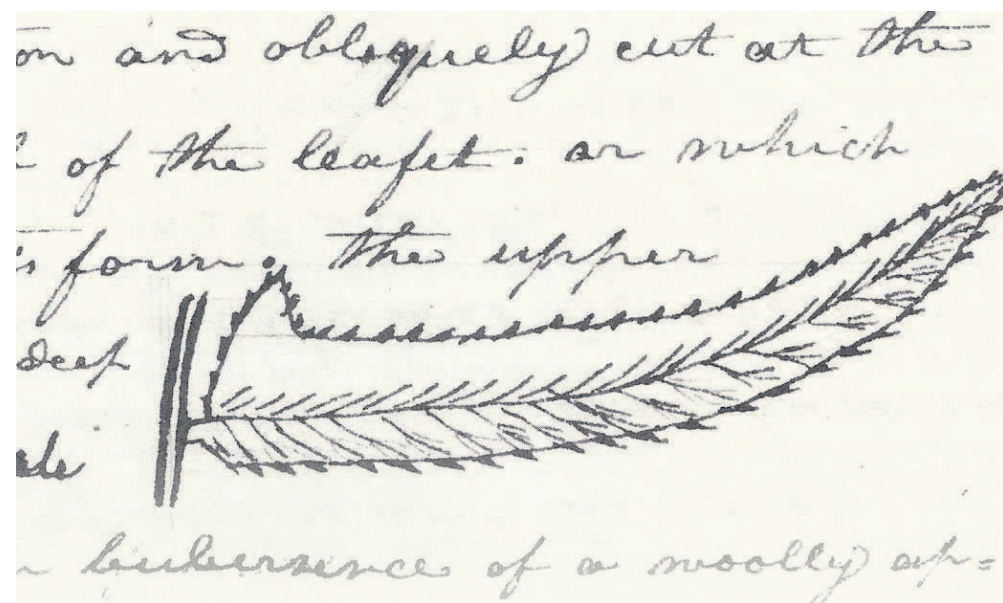 on and obliquely cut at the
of the leafet. or which
form. the upper
deep
of a woolly ap=